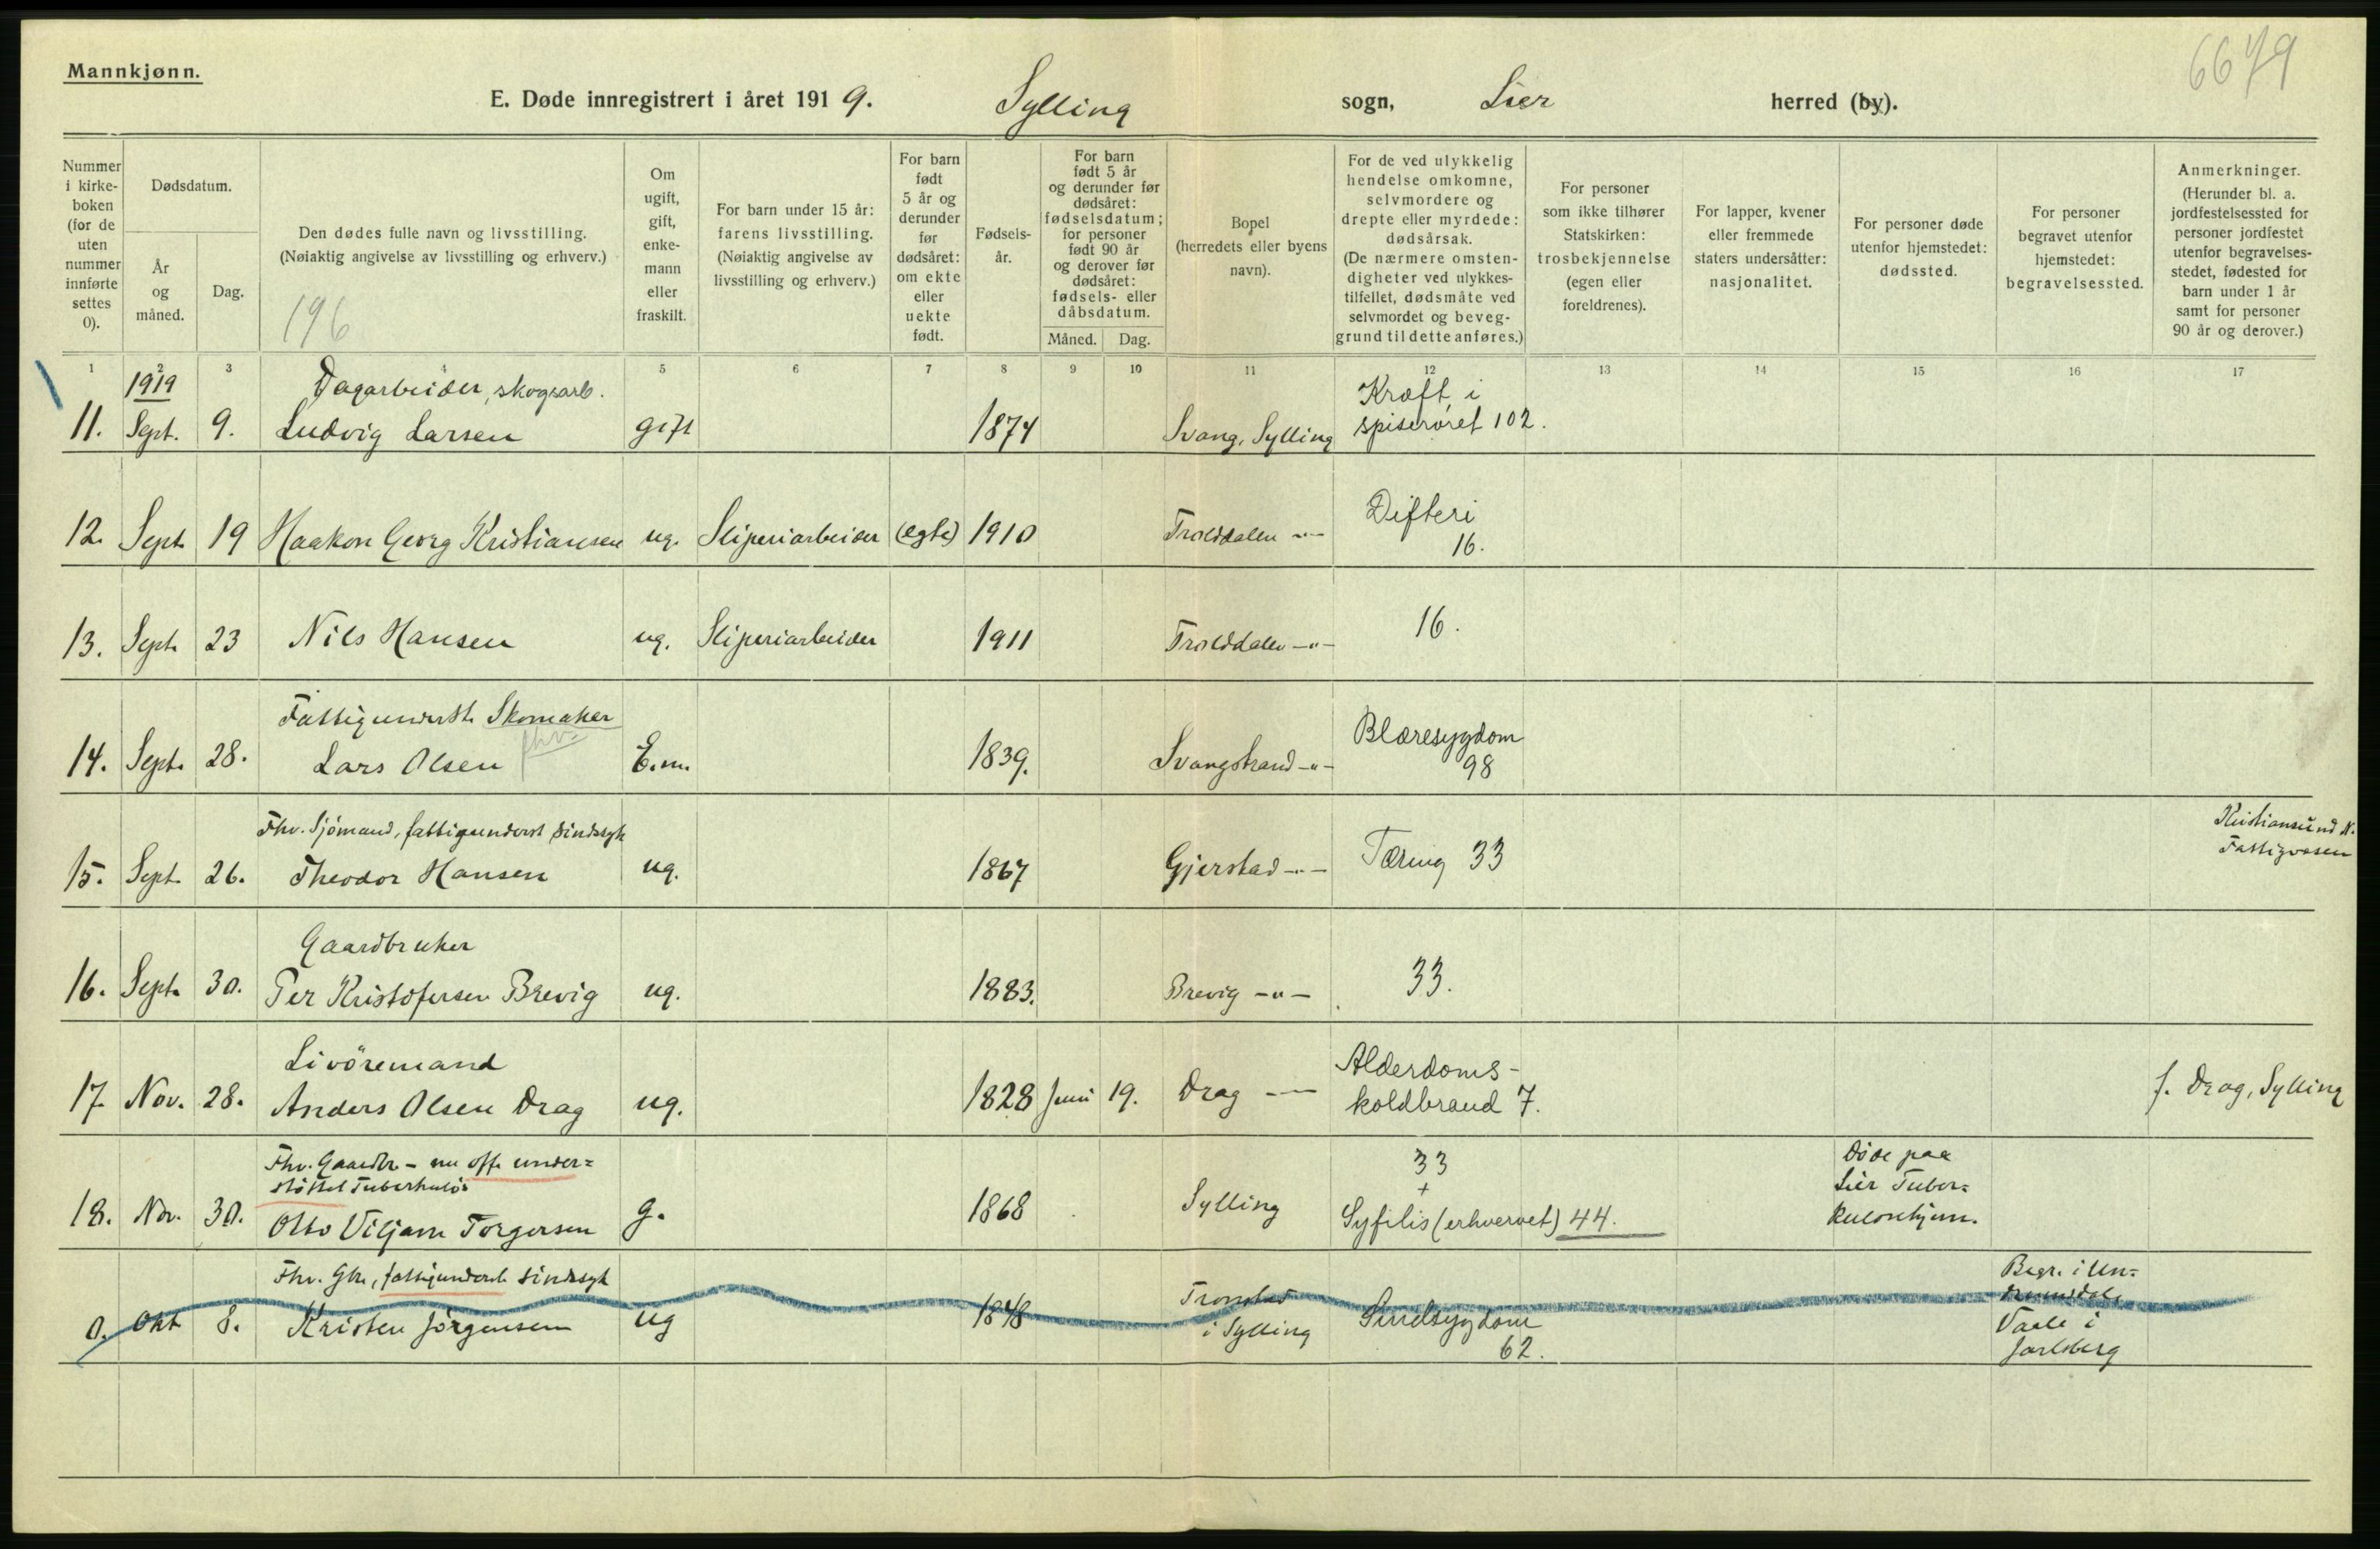 Mannkjønn.
6679
E. Døde innregistrert i året 1919. Sylling sogn, Lier herred (by).
Nummer i kirke- boken (for de uten nummer innførte settes 0).
Dødsdatum.
År og måned.
Dag.
Den dødes fulle navn og livsstilling.
(Nøiaktig angivelse av livsstilling og erhverv.)
196
Om ugift, gift, enke- mann eller fraskilt.
For barn under 15 år: farens livsstilling. (Nøiaktig angivelse av livsstilling og erhverv.)
For barn født 5 år og derunder før dødsåret: om ekte eller uekte født.
Fødsels- år.
For barn født 5 år og derunder før dødsåret: fødselsdatum; for personer født 90 år og derover før dødsåret: fødsels- eller dåbsdatum.
Måned. Dag.
Bopel (herredets eller byens navn).
For de ved ulykkelig hendelse omkomne, selvmordere og drepte eller myrdede: dødsårsak. (De nærmere omsten- digheter ved ulykkes- tilfellet, dødsmåte ved selvmordet og beveg- grund til dette anføres.)
For personer som ikke tilhører Statskirken: trosbekjennelse (egen eller foreldrenes).
For lapper, kvener eller fremmede staters undersåtter: nasjonalitet.
For personer døde utenfor hjemstedet: dødssted.
For personer begravet utenfor hjemstedet: begravelsessted.
Anmerkninger. (Herunder bl. a. jordfestelsessted for personer jordfestet utenfor begravelses- stedet, fødested for barn under 1 år samt for personer 90 år og derover.)
1 2 3 4 5 6 7 8 9 10 11 12 13 14 15 16 17
1919 Dagarbeider, skogsarb. Kræft i
11. Sept. 9. Ludvig Larsen gift 1874 Svang, Sylling spiserøret 102.
Difteri
12. Sept. 19 Haakon Georg Kristiansen ug. Sliperiarbeider (egte) 1910 Trolddalen -"- 16.
13. Sept. 23 Nils Hansen ug. Sliperiarbeider 1911 Trolddalen -"- 16.
Fattigunderst. Skomaker
fhv.
14. Sept. 28. Lars Olsen E.m. 1839. Svangstrand -"- Blæresygdom 98
Fhv. Sjömand, fattigunderst sindssyk
15. Sept. 26. Theodor Hansen ug. 1867 Gjerstad -"- Tæring 33 Kristiansund N. Fattigvæsen
Gaardbruker
16. Sept. 30. Per Kristofersen Brevig ug. 1883. Brevig -"- 33.
Livöremand Alderdoms-
17. Nov. 28. Anders Olsen Drag ug. 1828 Juni 19. Drag -"- koldbrand 7. f. Drag, Sylling
Fhv. Gaardbr. - nu off. under= 33 Døde paa
støttet Tuberkuløs + Lier Tuber=
18. Nov. 30. Otto Viljam Torgersen g. 1868 Sylling Syfilis (erhvervet) 44. kulosehjem.
Fhv. Gbr., fattigunderst. sindssyk Tronstad Begr. i Un=
0. Okt 8. Kristen Jörgensen ug 1848 i Sylling Sindsygdom 62.
Vaale i
Jarlsberg